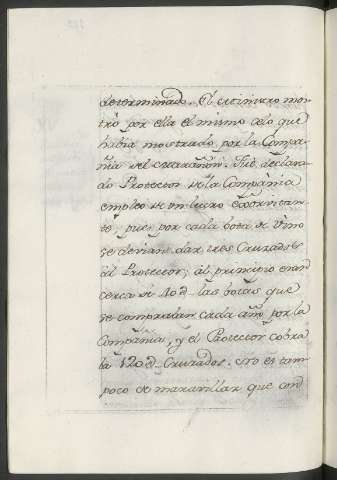 determinado. El ministro mos-
tró por ella el mismo celo que
habia mostrado por la Compa-
ñia del Marañon. Fue declara-
do Protector de la Compañia
empleo de un lucro exorbitan-
te pues por cada bota de vino
se devian dar tres Cruzados
al Protector; al principio eran
cerca de 40d las botas que
se compraban cada año por la
Compañia, y el Protector cobra
ba 120d Cruzados. No es tam
poco de maravillar que con